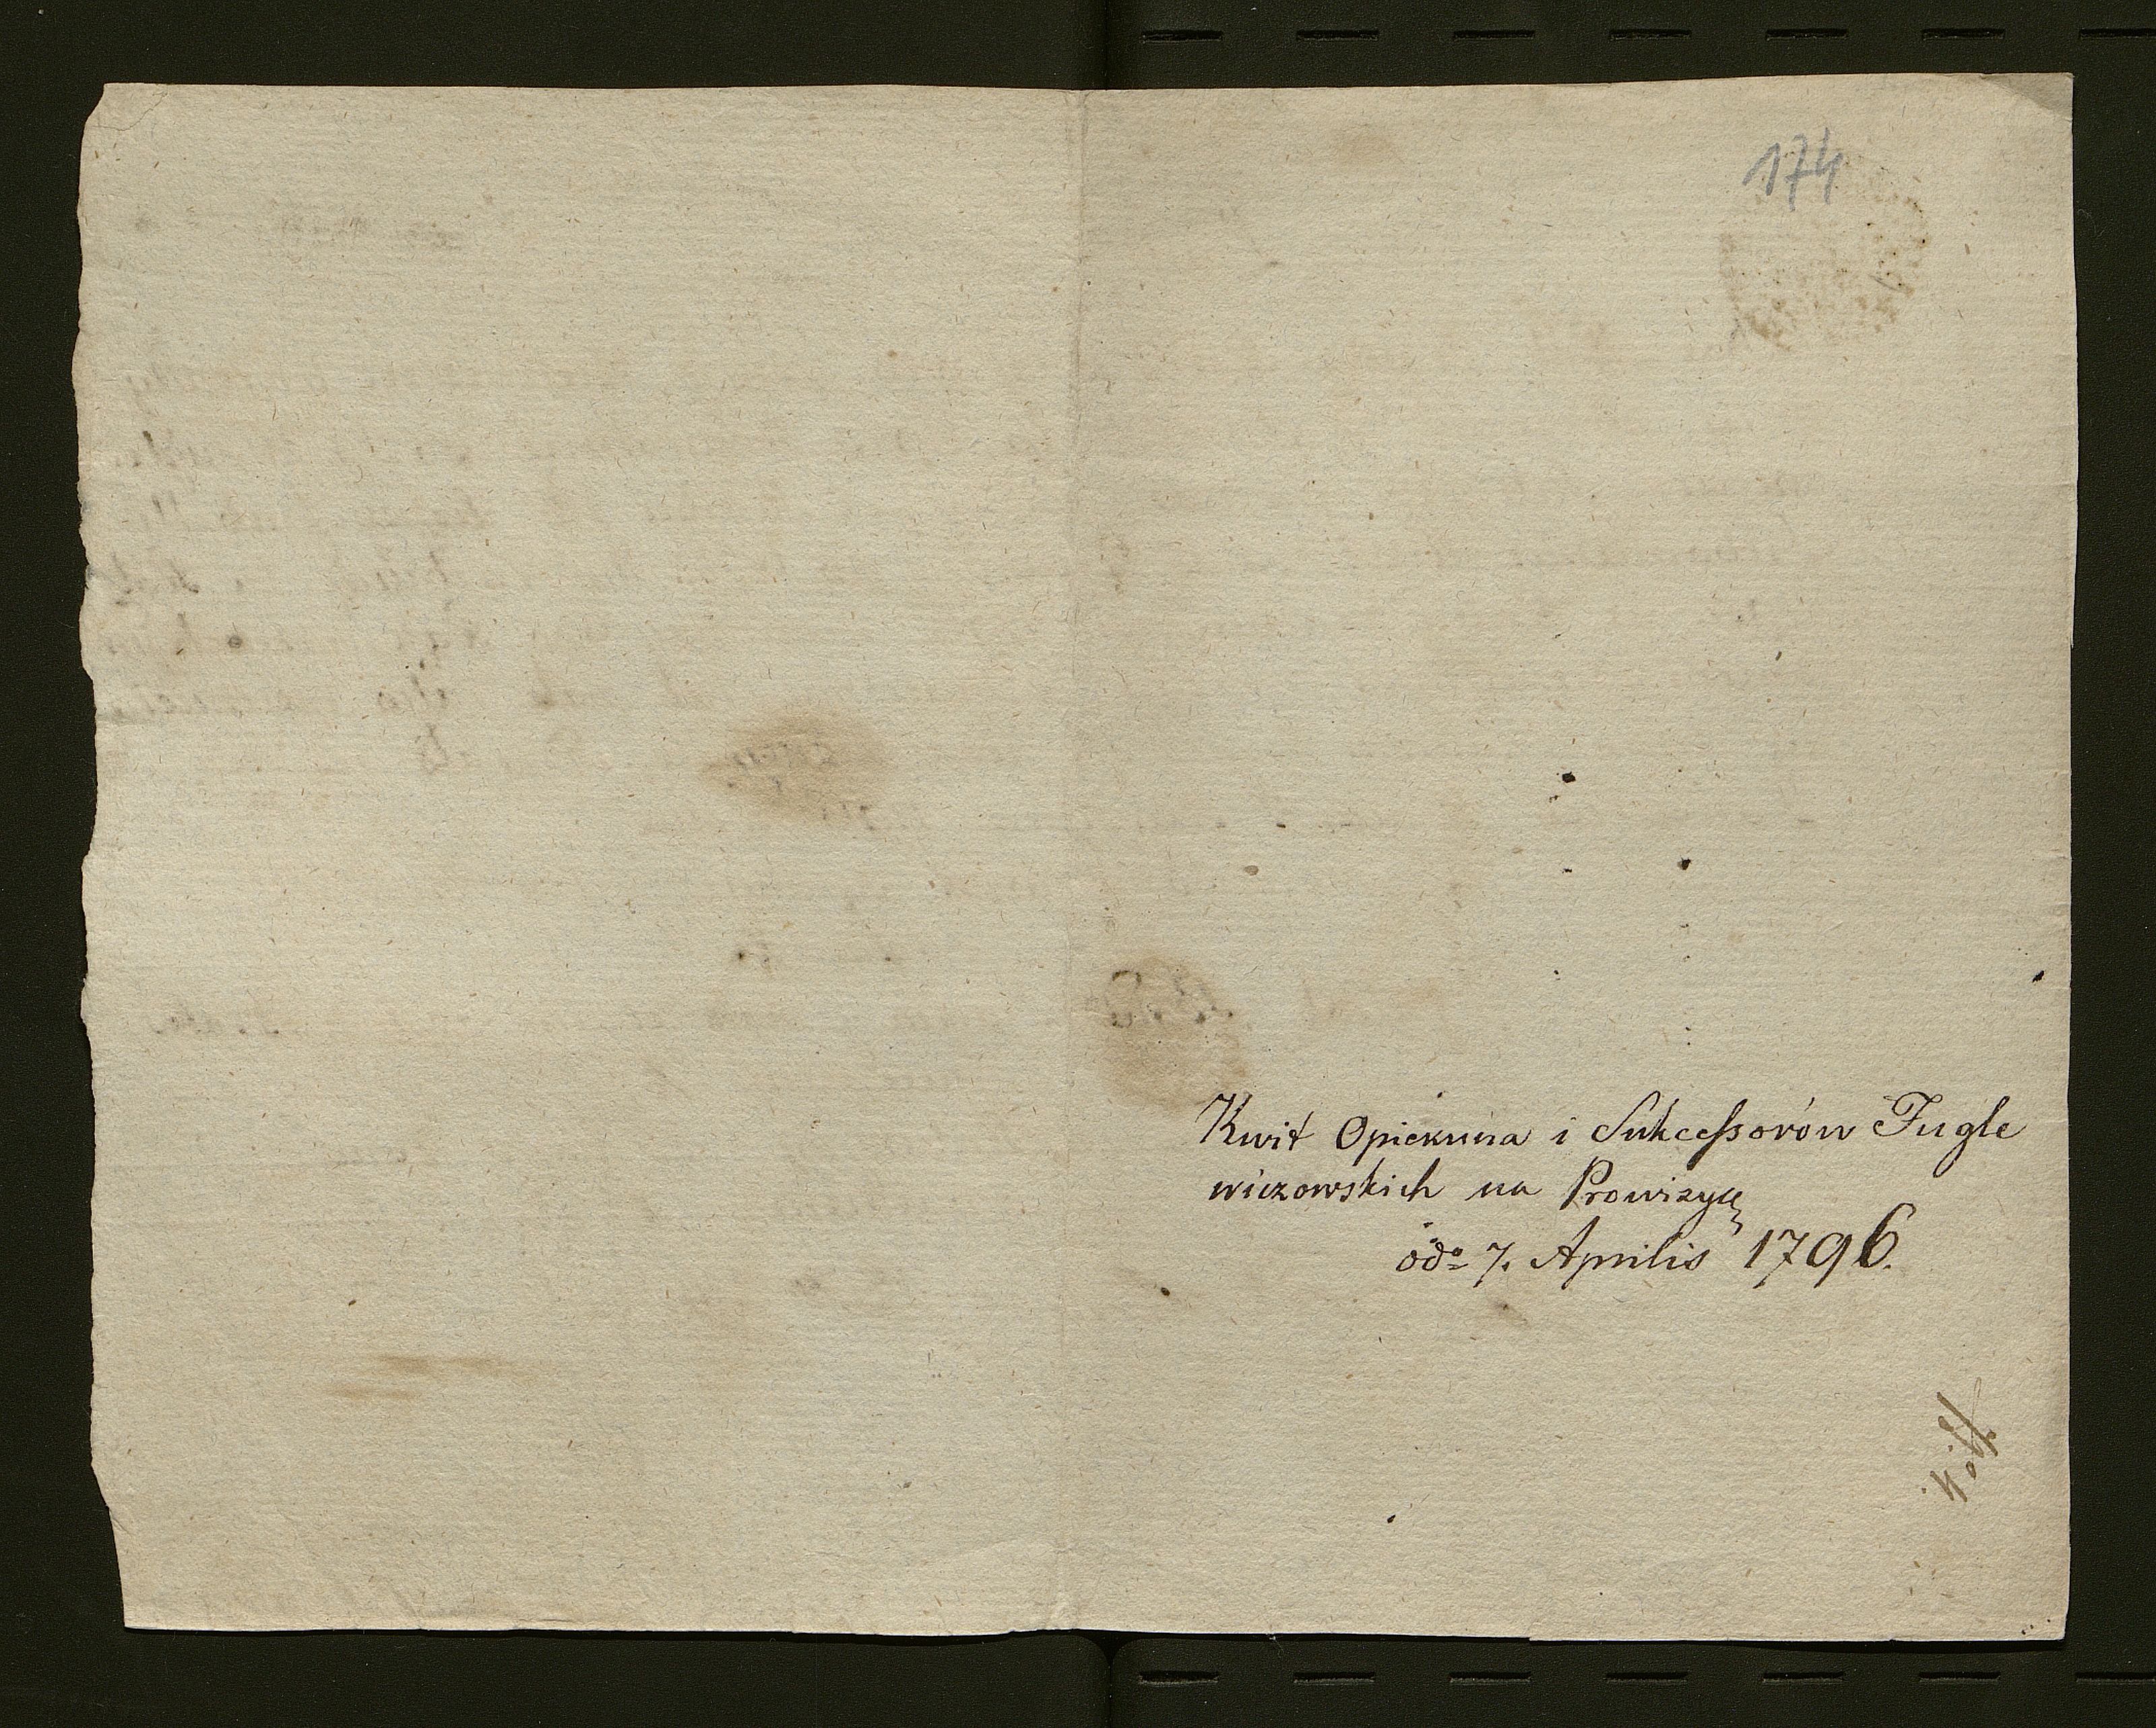 174
Kwit Opiekuna i Sukcessorów Fugle
wiczowskich na Prowizyę
7. Aprilis 1796.